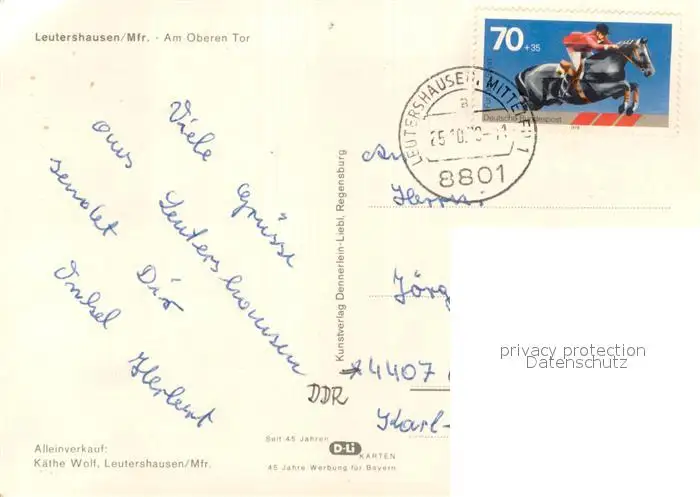 Leutershausen/Mfr. - Am Oberen Tor
70 +35
Deutsche Bundespost
LEUTERSHAUSEN, MITTELFR 1
8801
Viele Grüsse
aus Leutershausen
sendet Dir
Onkel Herbert
Kunstverlag Dennerlein-Liebl, Regensburg
An
Herrn:
Jörg
*4407
DDR
Karl-
privacy protection
Datenschutz
Alleinverkauf:
Käthe Wolf, Leutershausen/Mfr.
Seit 45 Jahren
D-Li
KARTEN
45 Jahre Werbung für Bayern